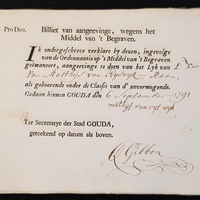 Pro Deo.
Billiet van aangeevinge, wegens het
Middel van 't Begraven.
Ik ondergeschreve verklare by desen, ingevolge
van de Ordonnantie op 't Middel van 't Begraven
geëmaneert, aangeevinge te doen van het Lyk van
Van Matthys van
als gehoorende onder de Classis van d' onvermogende.
Gedaan binnen GOUDA den 6 September 1791
mattys van
Ter Secretarye der Stad GOUDA,
geteekend op datum als boven.